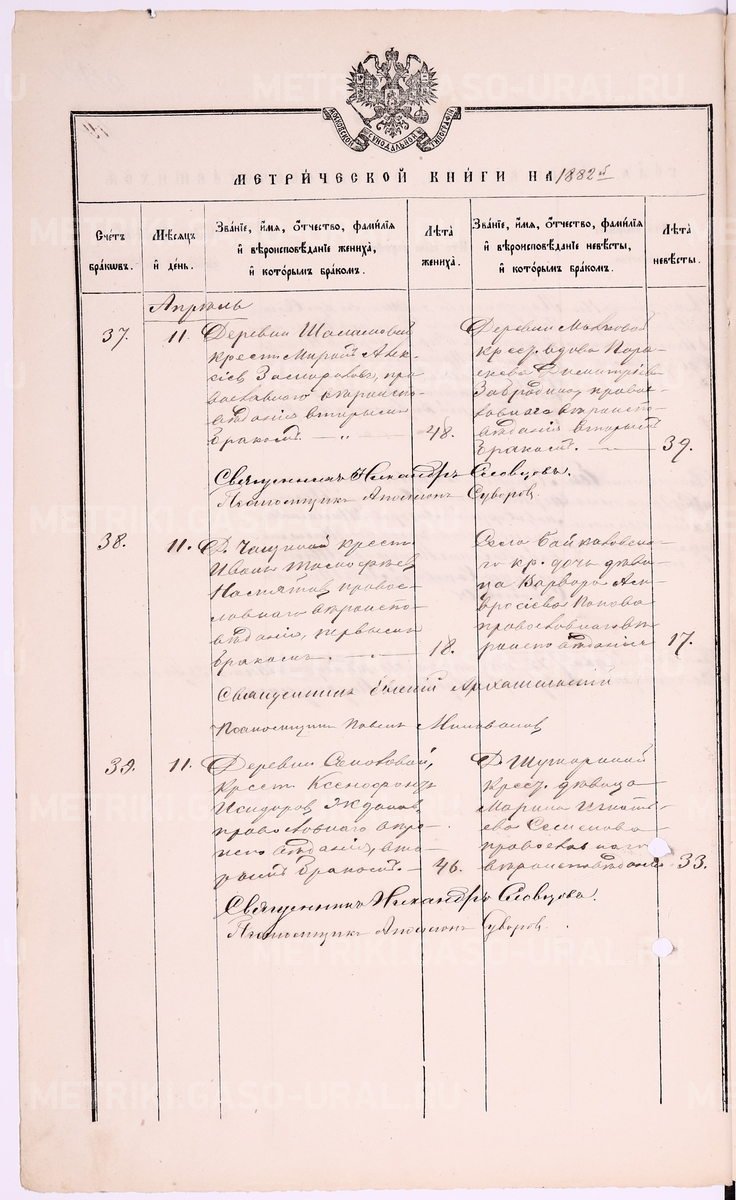 МОСКОВСКОЙ СѴНОДАЛЬНОЙ ТИПОГРАФІИ
МЕТРИ́ЧЕСКОЙ КНИ́ГИ НА 1882й
Сче́тъ бра́ковъ.
Мѣ́сяцъ и҆ де́нь.
Зва́нїе, и҆́мя, ѻ҆́тчество, фами́лїя и҆ вѣроисповѣ́данїе жениха̀, и҆ кото́рымъ бра́комъ.
Лѣ́та жениха̀.
Зва́нїе, и҆́мя, ѻ҆́тчество, фами́лїя и҆ вѣроисповѣ́данїе невѣ́сты, и҆ кото́рымъ бра́комъ.
Лѣ́та невѣ́сты.
Апрѣль
37.
11.
Деревни
крест. Алек-
сіев пра-
вославнаго вѣроиспо-
вѣданія вторымъ
бракомъ.
48.
Деревни
крест. вдова Пара-
скева Димитріева
право-
славнаго вѣроиспо-
вѣданія вторымъ
бракомъ.
39.
Священникъ Никандръ Словцовъ.
Псаломщикъ Аполлон Суворов.
38.
11.
Д. крест.
Иванъ Тимофѣев
правос-
лавнаго вѣроиспо-
вѣданія, первымъ
бракомъ.
18.
Села Байкаловска-
го кр. дочь дѣви-
ца Варвара Ам-
вросіева Попова
православнаго вѣ-
роисповѣданія
17.
Священникъ Евгеній Архангельскій
Псаломщикъ Павелъ Миловановъ
39.
11.
Деревни
крест. Ксенофонтъ
Исидоров Ждановъ,
православнаго вѣро-
исповѣданія, вто-
рымъ бракомъ.
46.
Д.
крест. дѣвица
Марина Игнать-
ева Семенова
православнаго
вѣроисповѣданія
33.
Священникъ Никандръ Словцовъ.
Псаломщикъ Аполлон Суворов.
METRIKI.GASO-URAL.RU